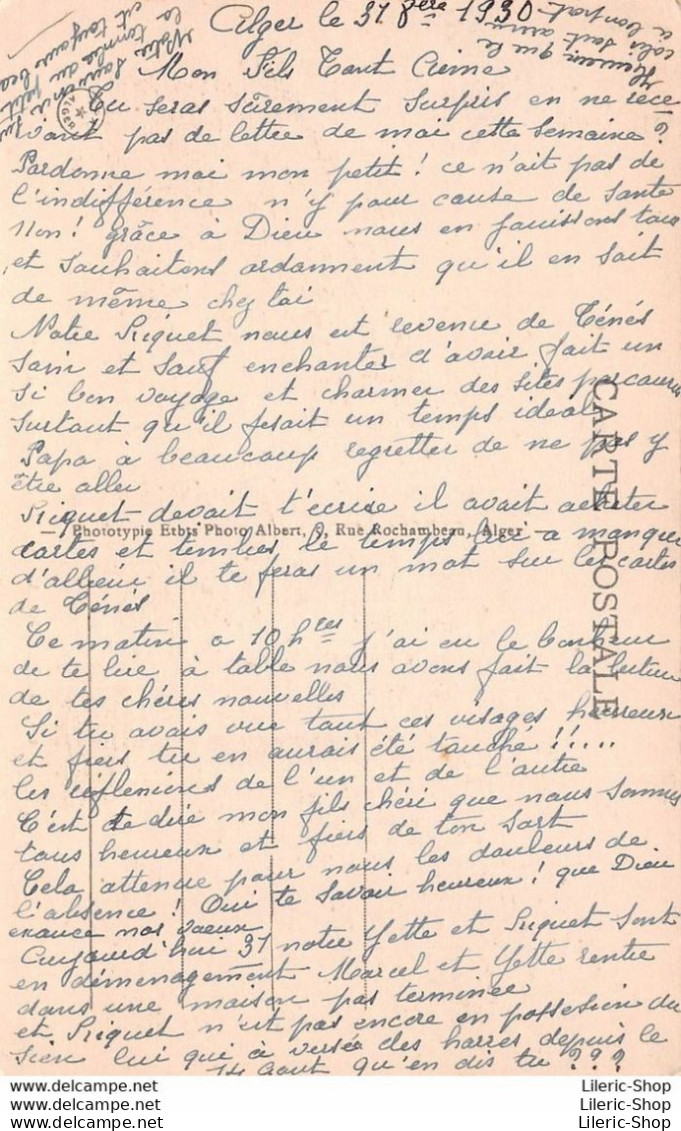 Alger le 31 8bre 1930
Mon Fils Tant Aimé
Tu seras sûrement surpris en ne rece
vant pas de lettre de moi cette semaine
Pardonne moi mon petit! ce n'ait pas de
l'indifférence n'y pour cause de santé
Non! grâce à Dieu nous en jouissons tous
et souhaitons ardamment qu'il en soit
de même chez toi
Notre Riquet nous est revenue de Ténés
sain et sauf enchanter d'avoir fait un
si bon voyage et charmer des sites parcourus
surtout qu'il fesait un temps ideal
Papa à beaucoup regretter de ne pas y
être aller
Riquet devait t'écrire il avait acheter
Phototypie Etbts Photo Albert, 9, Rue Rochambeau, Alger
cartes et timbres le temps lui a manquer
d'ailleur il te feras un mot sur les cartes
de Ténés
CARTE POSTALE
Ce matin a 10 hres j'ai eu le bonheur
de te lire à table nous avons fait la lecture
de tes chéres nouvelles
Si tu avais vue tout ces visages heureux
et fiers tu en aurais été touché!!....
les réflexions de l'un et de l'autre
C'est te dire mon fils chéri que nous sommes
tous heureux et fiers de ton sort
Cela attenue pour nous les douleurs de
l'absence! Oui te savoir heureux! que Dieu
exauce nos voeux
Aujourd'hui 31 notre Yette et Riquet sont
en déménagement Marcel et Yette rentre
dans une maison pas terminée
et Riquet n'est pas encore en possesion du
sien lui qui à versée des harres depuis le
14 Aout qu'en dis tu ???
Notre
la tombe du petit
est toujours
ALGER
que le
colis soit arrivé
à bon port
www.delcampe.net
Lileric-Shop
www.delcampe.net
Lileric-Shop
www.delcampe.net
Lileric-Shop